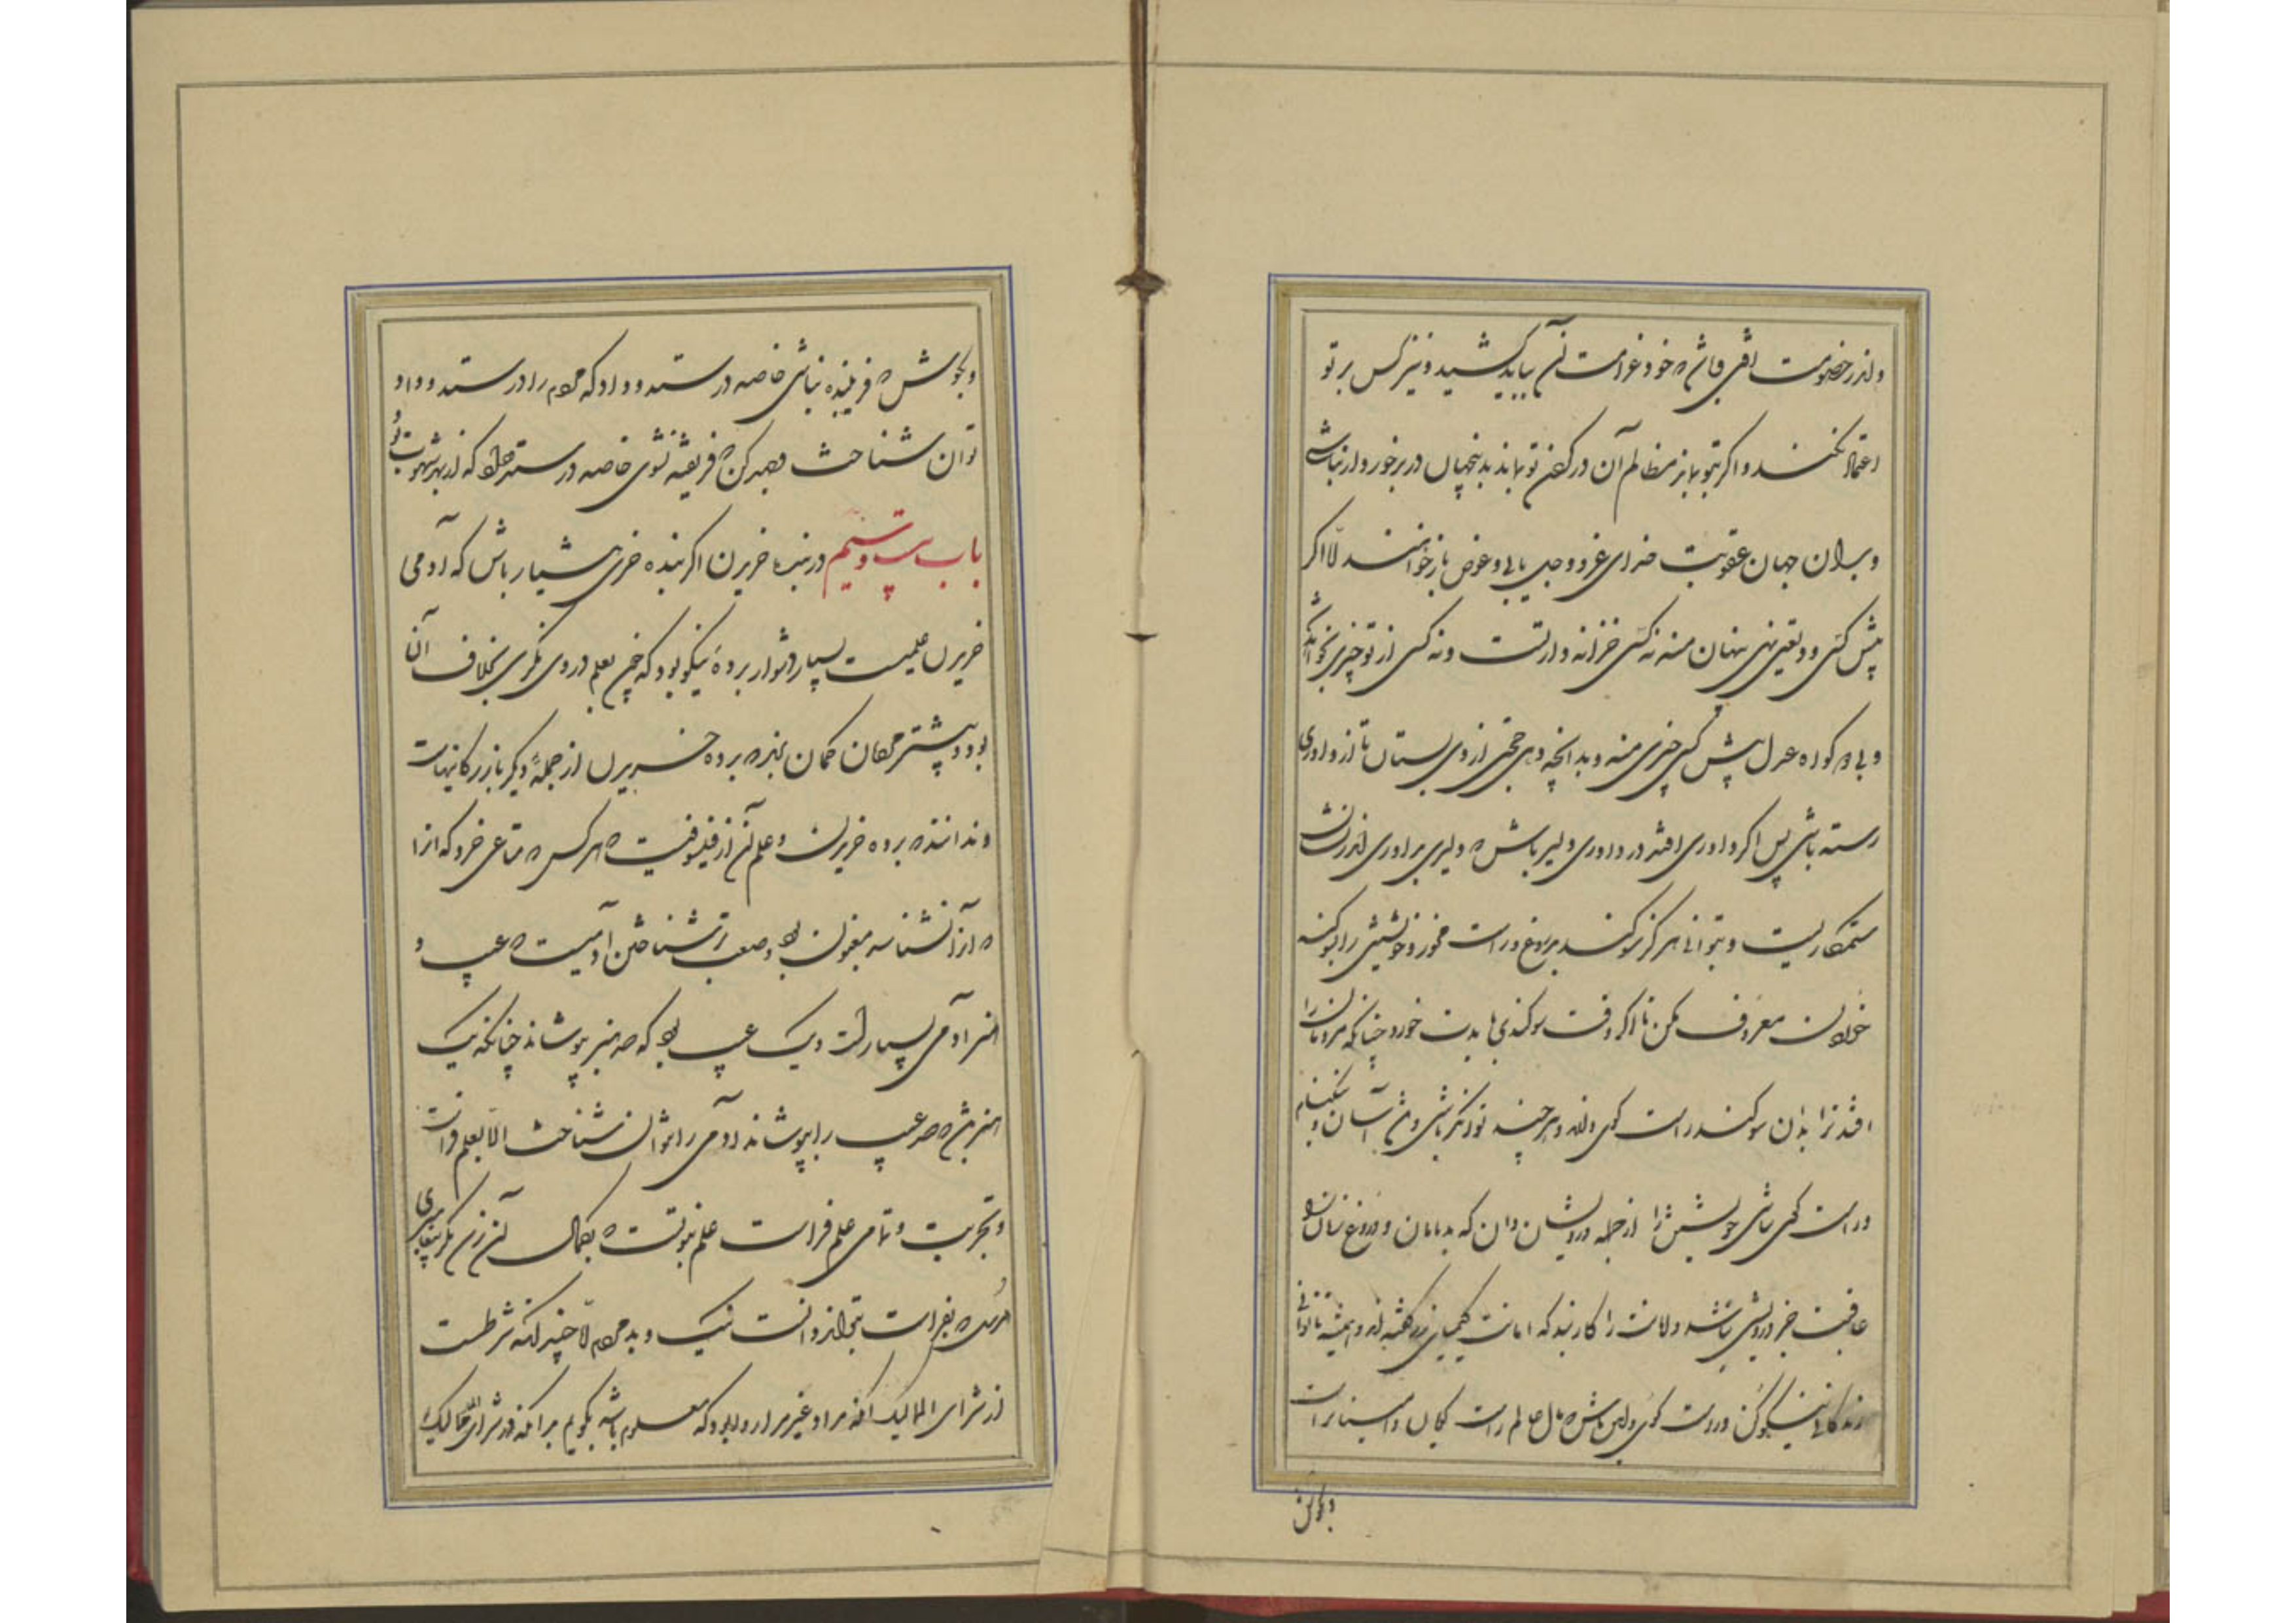 و اندر خصومت افتی و فاش شود و غرامت آن بباید کشید و نیز کس بر تو
اعتماد نکند و اگر بتو بماند مظالم آن در گردن تو بماند بدینجهان در برخوردار نباشی
و بدان جهان عقوبت خدای عز و جل یابی و عوض باز خواهند امّا اگر
پیش کسی ودیعتی نهی پنهان منه نه کسی خزانه دار تست و نه کسی از تو چیزی بخواهد
و بی دو گواه عدل پیش کسی چیزی منه و بدانچه دهی حجتی از وی بستان تا از داوری
رسته باشی پس اگر داوری افتد در داوری دلیر باش که دلیری بداوری اندر نشان
ستمکاریست و بتوانی هرگز سوگند بدروغ و راست مخور و خویشتن را بسوگند
خوردن معروف مکن تا اگر وقت سوگندی بایدت خورد چنانکه مردمان را
افتد ترا بدان سوگند راست گوی دارند و هر چند توانگر باشی و
و راست گوی نباشی خویشتن را از جمله درویشان دان که بدنامان و دروغ زنان را
عاقبت جز درویشی نباشد و امانت را کار بند که امانت کیمیای زر گفته اند و همیشه توانگر
زندگانی نیکو کن و راست گوی و امین باش که مال عالم راست گویان و امینان راست
و بکوش
و بکوش که فریبنده نباشی خاصه در ستد و داد که مردم را در ستد و داد
توان شناخت و جهد کن که فریفته نشوی خاصه در ستد و داد که از بهر شهوت بود
باب بیست و سیم در بنده خریدن اگر بنده خری هشیار باش که آدمی
خریدن علمیست بسیار دشوار برده نیکو بود که چون بعلم در وی نگری بخلاف آن
بود و بیشتر مردمان گمان برند که برده خریدن از جملهٔ دیگر بازرگانیهاست
و ندانند که برده خریدن و علم آن از فیلسوفیست که هر کس که متاعی خرد که آنرا
که آنرا نشناسد مغبون بود و صعب تر شناختن آدمیست که عیب و
هنر آدمی بسیارست و یک عیب بود که صد هنر بپوشاند چنانکه یک
هنر باشد که صد عیب را بپوشاند و آدمی را نتوان شناخت الّا بعلم فراست
و تجربت و تمامی علم فراست علم نبوتست که بکمال آن نرسد مگر پیغامبری
مرسل که بفراست بتواند دانست نیک و بد مردم امّا چندانکه شرطست
از شرای الممالیک آنچه مراد و غیر مراد بود که معلوم باشد بگویم بدانکه در شرای ممالیک